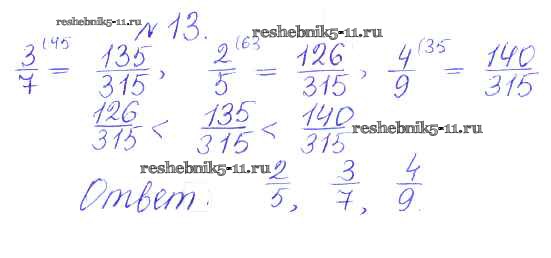 reshebnik5-11.ru
№ 13.
reshebnik5-11.ru
3/7 (45 = 135/315, 2/5 (63 = 126/315, 4/9 (35 = 140/315
126/315 < 135/315 < 140/315
reshebnik5-11.ru
reshebnik5-11.ru
Ответ: 2/5, 3/7, 4/9.